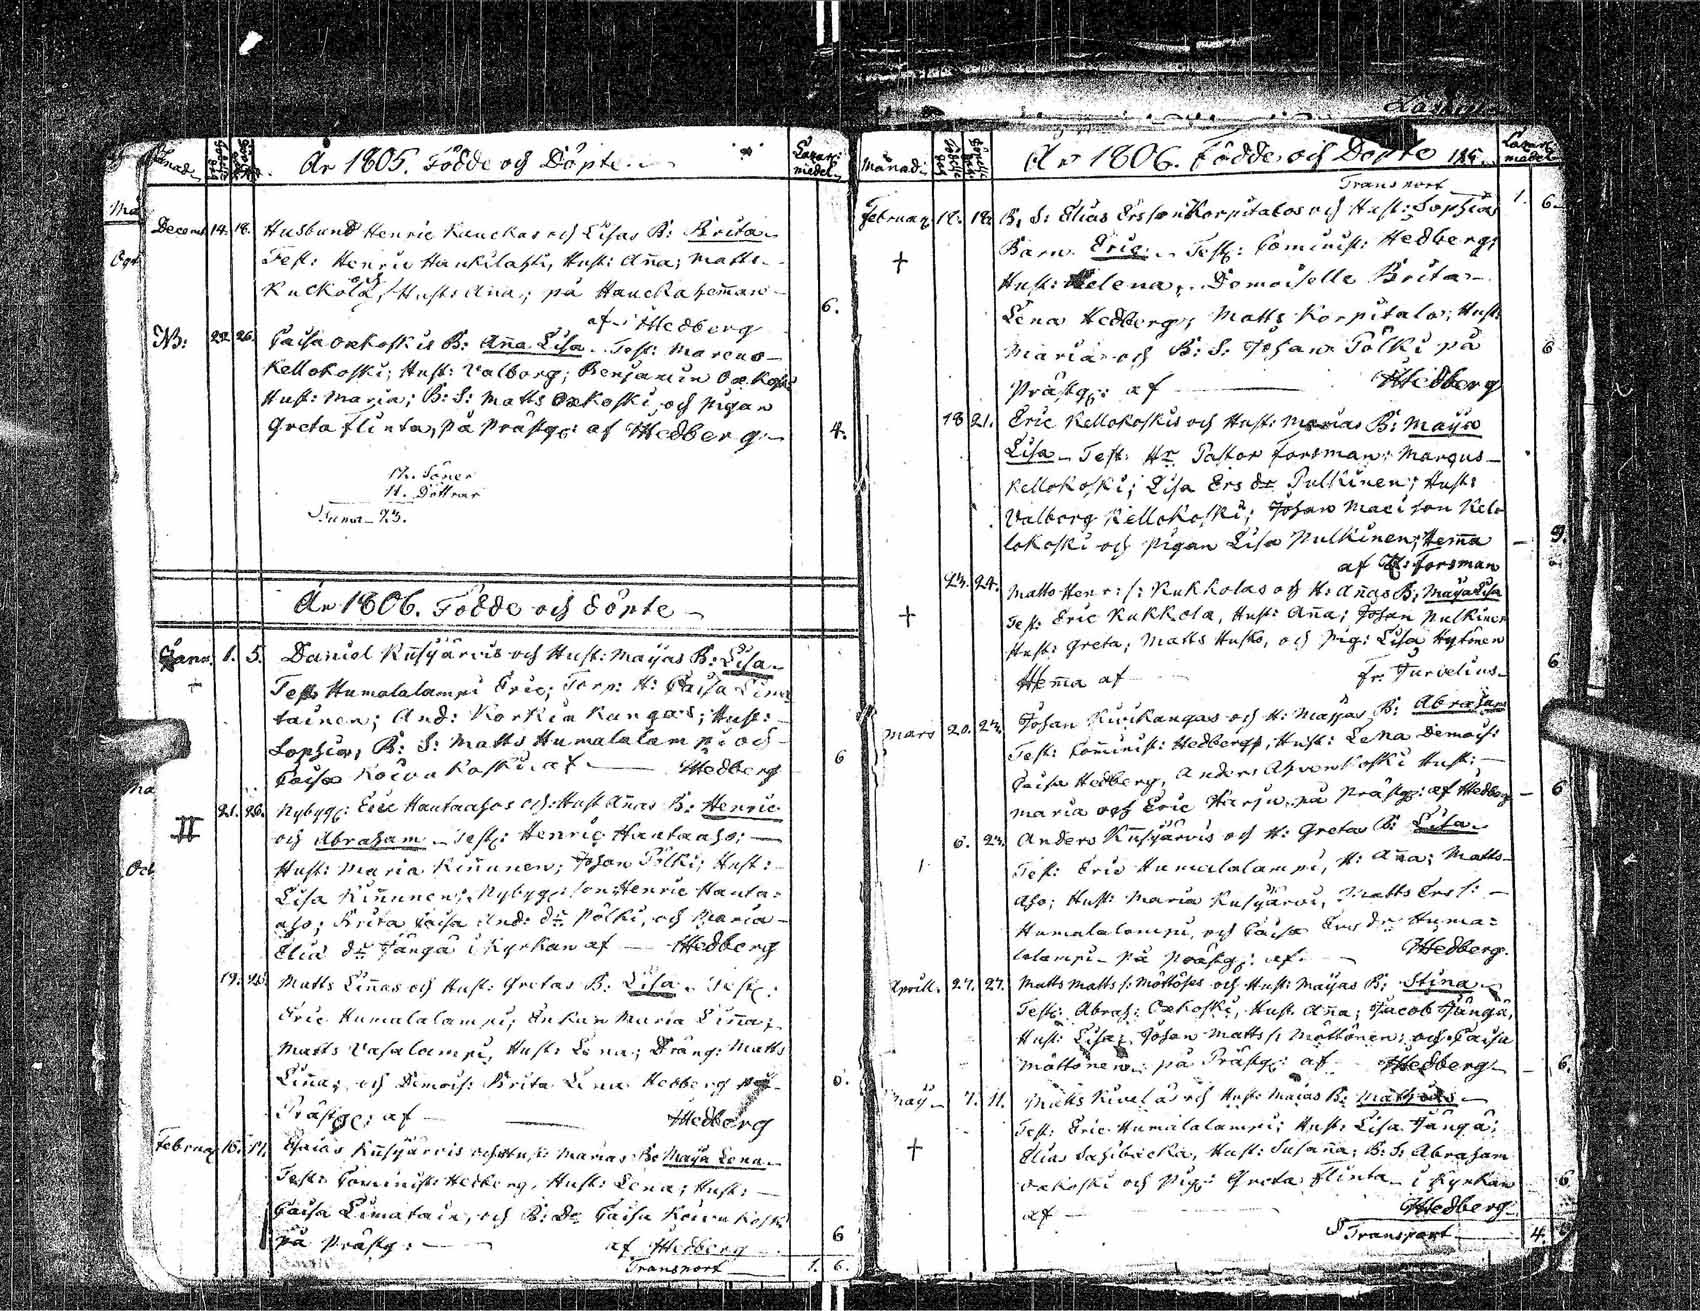 År 1805. Födde och Döpte.
Lazaretsmedel
Decemb. 14. 18. Husbund Henric Kauckas och Lisas B: Brita
Test: Henric Hankilahti, Hust: Aña; Matts
Kuckola, och Hust: Aña; på Hauckahem̄an
af Hedberg 6.
NB: 22. 26. Caisa Oxkoskis B: Aña Lisa. Test: Marcus
Kellokoski; Hust: Valborg; Benjamin Oxkoski
Hust: Maria; B: S: Matts Oxkoski och pigan
Greta Flinta, på Prästg: af Hedberg 4.
12. Söner
11. Döttrar
Suma 23.
År 1806. Födde och Döpte
Januar. 1. 5. Daniel Kusijärvis och Hust: Maijas B: Lisa
Test: Humalalampi Eric; Torp: H: Caisa Lima
tainen; And: Korkiakangas; Hust:
Sophia; B: S: Matts Humalalampi och
Caisa Koivukoski. af Hedberg 6
21. 26. Nybygg: Eric Hautaahos och Hust Añas B: Henric
II och Abraham. Test: Henric Hautaaho;
Hust: Maria Kiñunen; Johan Pölki; Hust:
Lisa Kiñunen; Nybygg: son Henric Hauta
aho; Brita Caisa And: dr Pölki, och Maria
Elia dr Jångä i Kyrkan af Hedberg
19. 26. Matts Liñas och Hust: Gretas B: Lisa. Test:
Eric Humalalampi; Enkan Maria Liña;
Matts Vasalampi, Hust: Lena; Dräng: Matts
Liña; och Demois: Brita Lena Hedberg på 6.
Prästg: af Hedberg
Februar. Esaias Kusijärvis och Hust: Marias B: Maija Lena
Test: Com̄inist: Hedberg, Hust: Lena; Hust:
Caisa Limatain, och B: Dr Caisa Koivukoski
på Prästg: af Hedberg 6
Transport 1. 6.
Månad År 1806. Födde och Döpte
Lazaretsmedel
Transport 1. 6
Februar. B: S: Elias Ersson Korpitalos och Hust: Sophias
Barn Eric. Test: Com̄inist: Hedberg;
Hust: Helena; Demoiselle Brita
Lena Hedberg; Matts Korpitalo; Hust:
Maria och B: S: Johan Pölki på 6
Prästg: af Hedberg
18 21. Eric Kellokoskis och Hust: Marias B: Maija
Lisa. Test: Hr Pastor Forsman; Marcus
Kellokoski; Lisa Ers dr Pulkinen; Hust:
Valborg Kellokoski; Johan
lokoski och pigan Lisa Pulkinen; Hem̄a 9.
af Forsman
23. 24. Matts Henr: s: Kukkolas och H: Añas B: Maija Lisa
Test: Eric Kukkola, Hust: Aña; Johan Pulkinen
Hust: Greta; Matts Husko, och pig: Lisa Hytönen
Hem̄a af fr. Jurvelius 6
Mars 20. 23. Johan Kivikangas och H: Maijas B: Abraham
Test: Com̄inist: Hedberg, Hust: Lena Demois:
Caisa Hedberg, Anders Ahvenkoski Hust:
Maria och Eric Harju, på Prästg: af Hedberg 6
6. 23. Anders Kusijärvis och H: Greta B: Lisa
Test: Eric Humalalampi, H: Aña; Matts
Aho; Hust: Maria Kusijärvi, Matts Ers s:
Humalalampi, och Caisa Ers dr Huma
lalampi på Prästg: af Hedberg.
Aprill. 27. 27. Matts Matts s: Möttöses och Hust: Maijas B: Stina
Test: Abrah: Oxkoski, Hust: Aña; Jacob Jångä,
Hust: Lisa; Johan Matts s: Möttönen; och Caisa
Möttönen: på Prästg: af Hedberg 6.
Maij 7. 11. Matts Kiveläs och Hust: Maias B: Mathias
Test: Eric Humalalampi; Hust: Lisa Jångä;
Elias Sahibacka, Hust: Susaña; B: S: Abraham
Oxkoski och Pig: Greta Flinta i Kyrkan 6
af Hedberg
Transport 4.